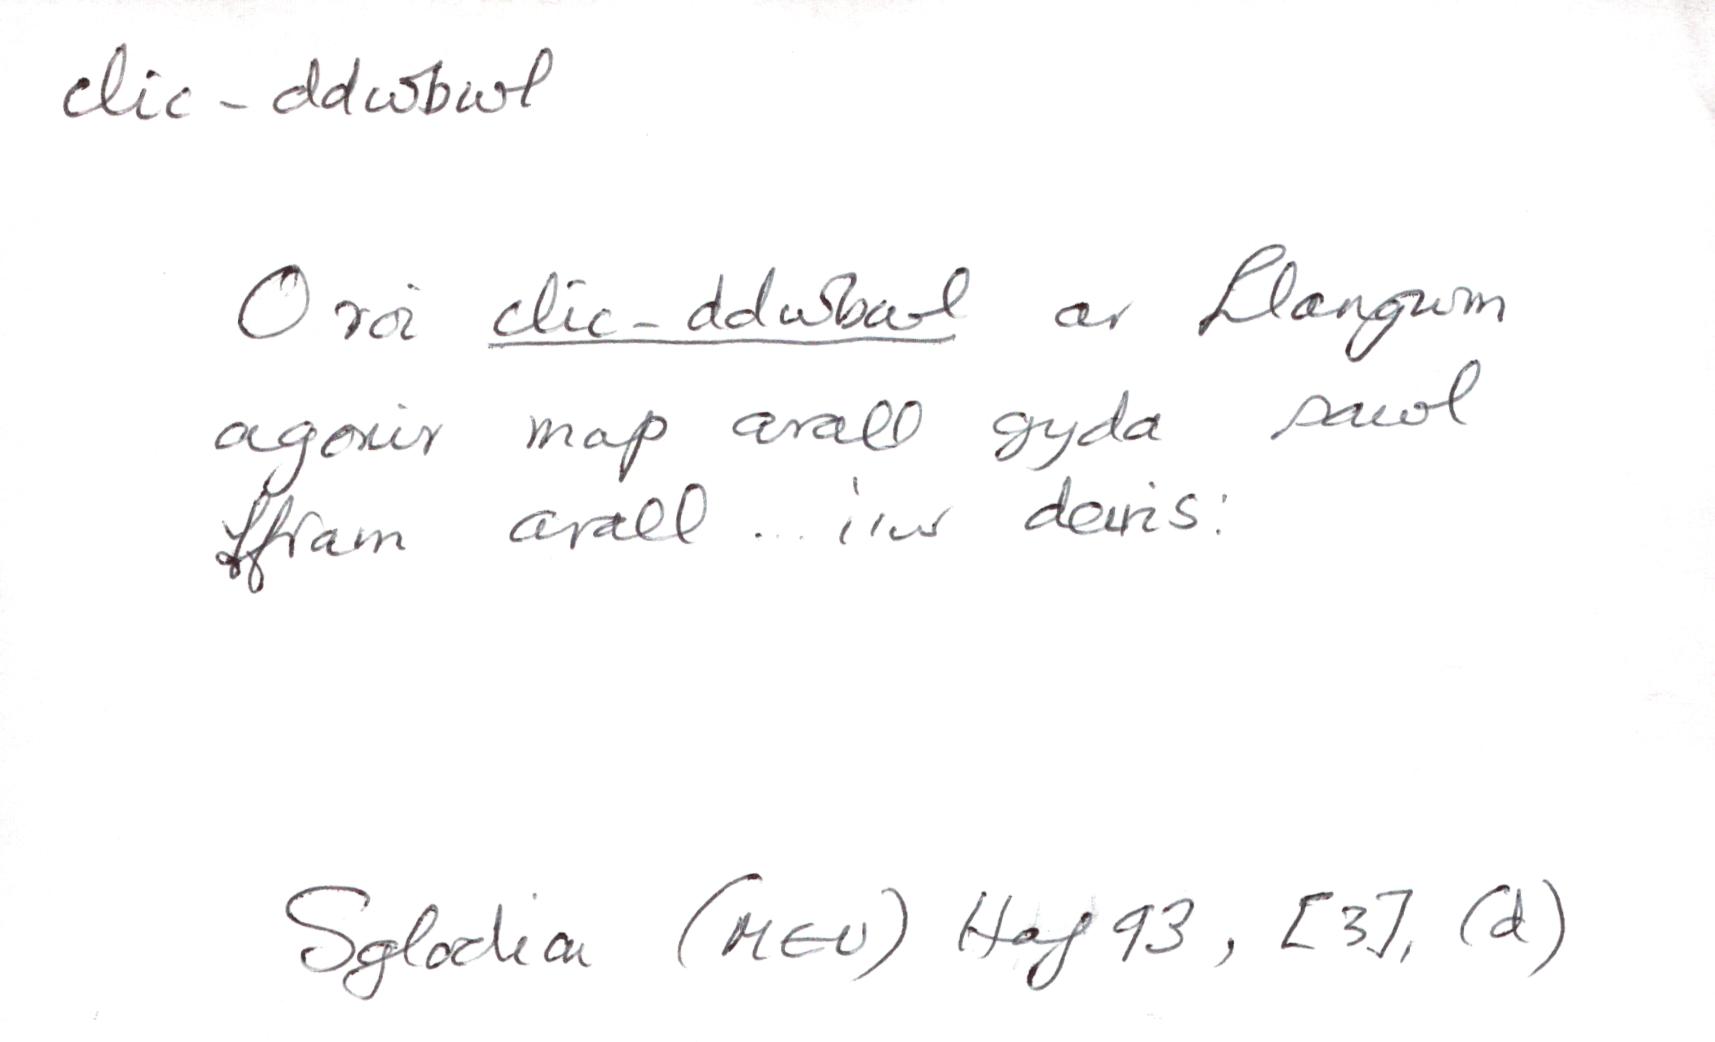 clic-ddwbwl
O roi clic-ddwbwl ar Llangwm
agorir map arall gyda sawl
ffram arall ... i'w dewis:
Sglodion (MEU) Haf 93, [3], (d)